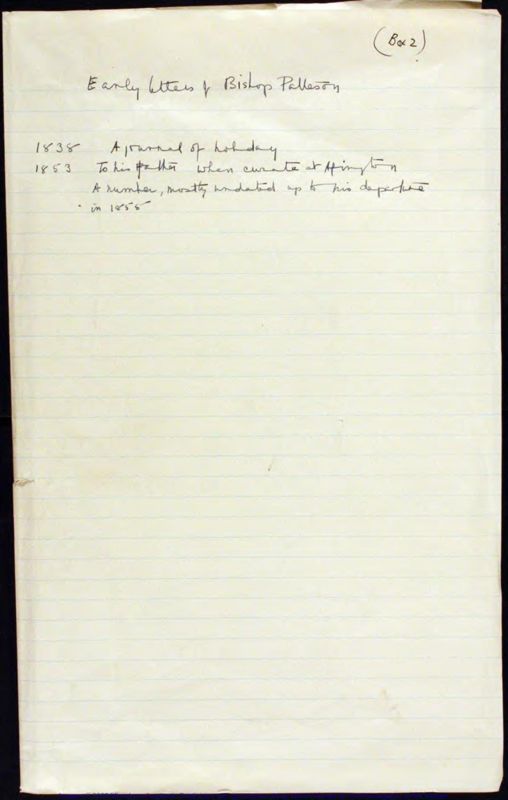 (Box 2)
Early letters of Bishop Patteson
1838 A journal of holiday
1853 To his father when curate at Alfington
A number, mostly undated up to his departure
in 1855